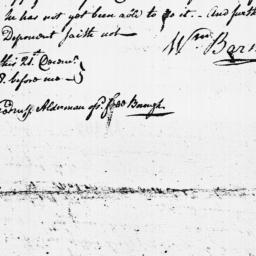 he has not yet been able to do it. And furth
Deponent saith not
Wm. Barn
this 21st Decemr.
8. before me
Alderman of sd. Borough.